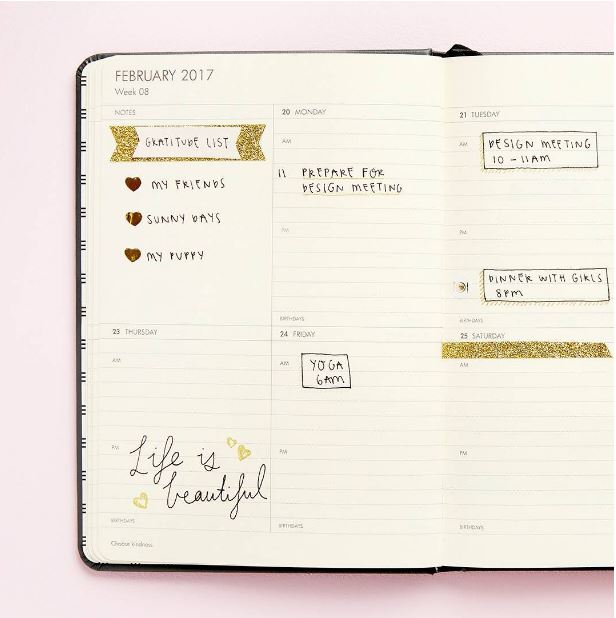 FEBRUARY 2017
Week 08
NOTES
GRATITUDE LIST
MY FRIENDS
SUNNY DAYS
MY PUPPY
20 MONDAY
AM
11 PREPARE FOR
DESIGN MEETING
PM
BIRTHDAYS
21 TUESDAY
AM
DESIGN MEETING
10 - 11AM
PM
DINNER WITH GIRLS
8PM
BIRTHDAYS
23 THURSDAY
AM
PM
Life is
beautiful
BIRTHDAYS
Choose kindness.
24 FRIDAY
AM
YOGA
6AM
PM
BIRTHDAYS
25 SATURDAY
AM
PM
BIRTHDAYS